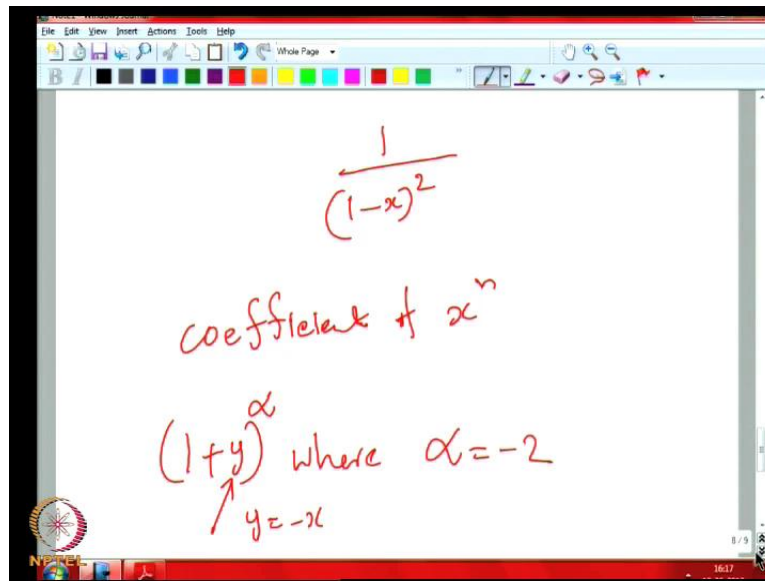 Note1 - Windows Journal
File Edit View Insert Actions Tools Help
Whole Page
B I
1
(1-x)^2
coefficient of x^n
(1+y)^α where α = -2
y = -x
8 / 9
NPTEL
16:17